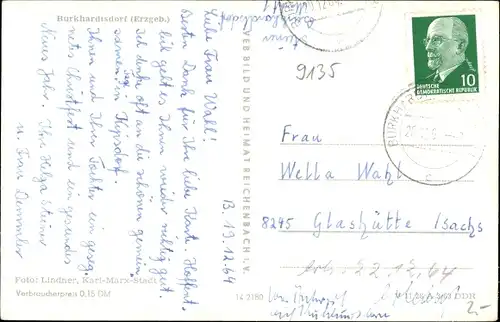 Burkhardtsdorf (Erzgeb.)
Liebe Frau Wahl!
Besten Dank für Ihre liebe Karte. Hoffent-
lich geht es Ihnen wieder richtig gut.
Ich denke oft an die schönen gemein-
samen Tage in Kipsdorf.
Ihnen und Ihrer Tochter ein geseg-
netes Christfest und ein gesundes
Neues Jahr. Ihre Helga Steiner
u. Frau Demmler
B. 19.12.64
Foto: Lindner, Karl-Marx-Stadt
Verbraucherpreis 0,15 DM
VEB BILD UND HEIMAT REICHENBACH I. V.
14 2180
9135
10
DEUTSCHE
DEMOKRATISCHE REPUBLIK
BURKHAR
Frau
Wella Wahl
8245 Glashütte /Sachs
erh. 22.12.64
DDR
2,-